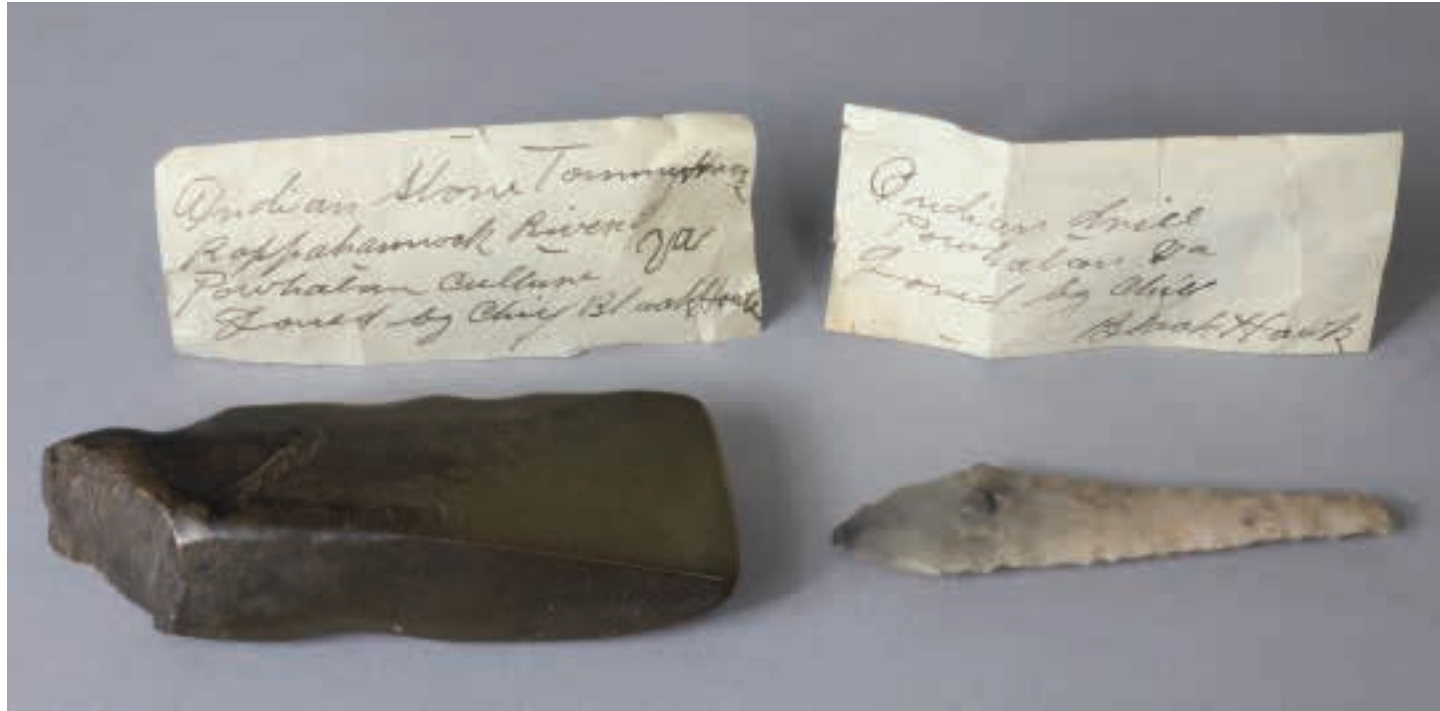 Indian Stone Tommyhawk
Rappahannock River
Va
Powhatan Culture
Loned by Chief Black Hawk
Indian Drill
Powhatan Va
Loned by Chief
Black Hawk